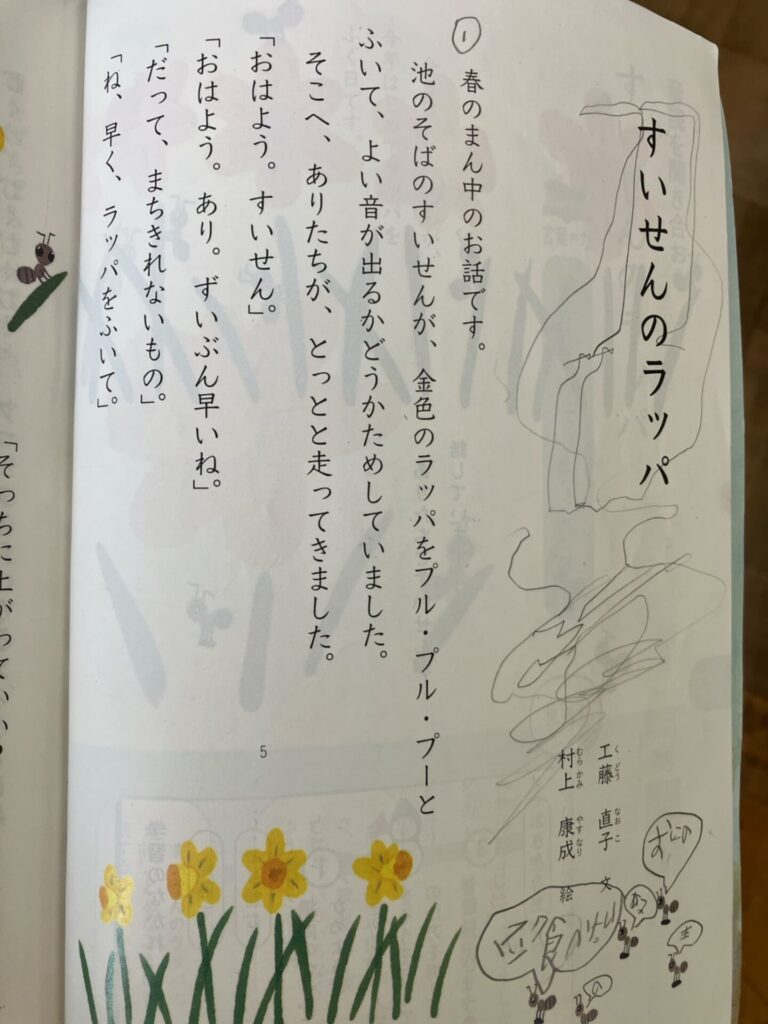 すいせんのラッパ
工藤 直子 文
くどう なおこ
村上 康成 絵
むらかみ やすなり
①
春のまん中のお話です。
池のそばのすいせんが、金色のラッパをプル・プル・プーと
ふいて、よい音が出るかどうかためしていました。
そこへ、ありたちが、とっとと走ってきました。
「おはよう。すいせん」
「おはよう。あり。ずいぶん早いね。」
「だって、まちきれないもの。」
「ね、早く、ラッパをふいて。」
5